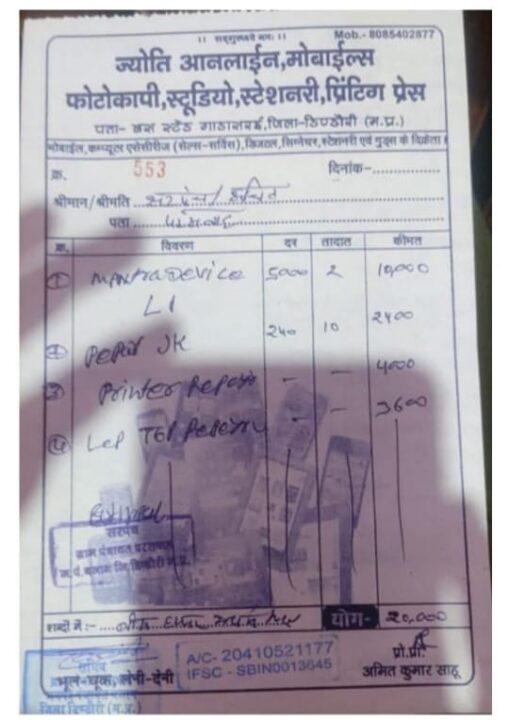 ।। सद्गुरुदेव नमः ।। Mob.- 8085402877
ज्योति आनलाईन,मोबाईल्स
फोटोकापी,स्टूडियो,स्टेशनरी,प्रिंटिग प्रेस
पता- बस स्टेड गाडासरई,जिला-डिण्डौरी (म.प्र.)
मोबाईल,कम्प्यूटर एसेसीरीज (सेल्स-सर्विस),डिजिटल,सिग्नेचर,स्टेशनरी एवं गुड्स के विक्रेता
क्र. 553 दिनांक-
श्रीमान/श्रीमति सरपंच/सचिव
पता
क्र. विवरण दर तादात कीमत
1 Mantra Device 5000 2 10,000
L1
2 Pepar JK 240 10 2400
3 Printer Repair - - 4000
4 Lep Top Reperi - - 3600
सरपंच
ग्राम पंचायत
शब्दों में :- बीस हजार योग- 20,000
सचिव
भूल-चूक, लेनी-देनी
A/C- 20410521177
IFSC - SBIN0013645
प्रो.प्रा.
अमित कुमार साहू
जिला डिण्डौरी (म.प्र.)